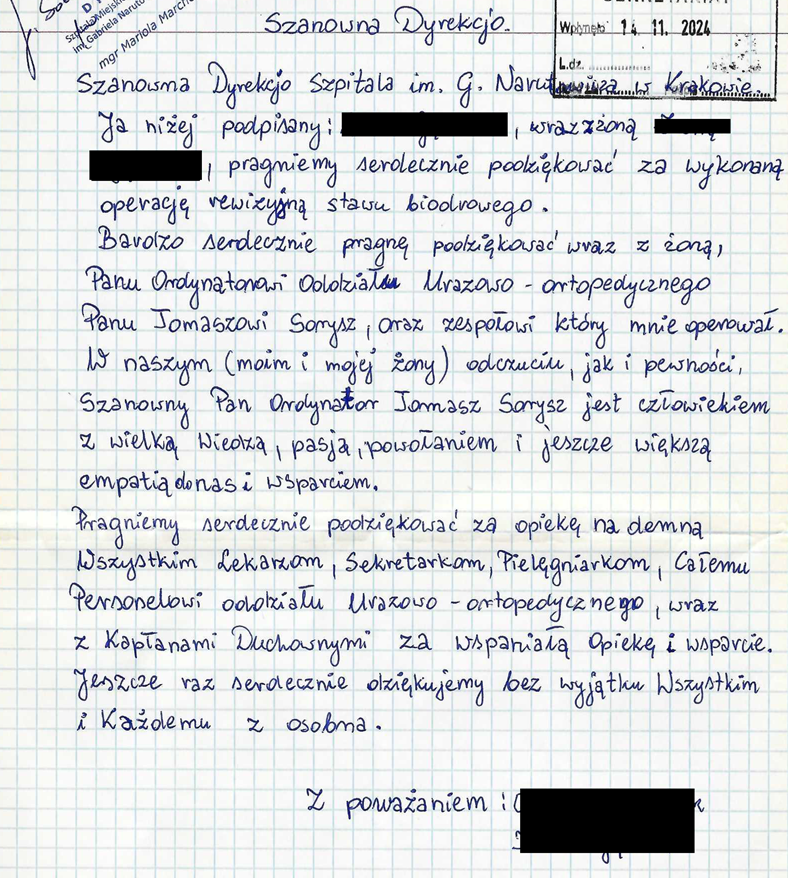 Szanowna Dyrekcjo.
Wpłynęło 14. 11. 2024
L.dz.
Szpitala Miejskiego
im. Gabriela Naruto
mgr Mariola Marcho
Szanowna Dyrekcjo Szpitala im. G. Narutowicza w Krakowie.
Ja niżej podpisany: , wraz z żoną
, pragniemy serdecznie podziękować za wykonaną
operację rewizyjną stawu biodrowego.
Bardzo serdecznie pragnę podziękować wraz z żoną,
Panu Ordynatorowi Oddziału Urazowo - ortopedycznego
Panu Tomaszowi Sorysz, oraz zespołowi który mnie operował.
W naszym (moim i mojej żony) odczuciu, jak i pewności,
Szanowny Pan Ordynator Tomasz Sorysz jest człowiekiem
z wielką Wiedzą, pasją, powołaniem i jeszcze większą
empatią do nas i wsparciem.
Pragniemy serdecznie podziękować za opiekę na demną
Wszystkim Lekarzom, Sekretarkom, Pielęgniarkom, Całemu
Personelowi oddziału Urazowo - ortopedycznego, wraz
z Kapłanami Duchownymi za wspaniałą Opiekę i wsparcie.
Jeszcze raz serdecznie dziękujemy bez wyjątku Wszystkim
i Każdemu z osobna.
Z poważaniem: